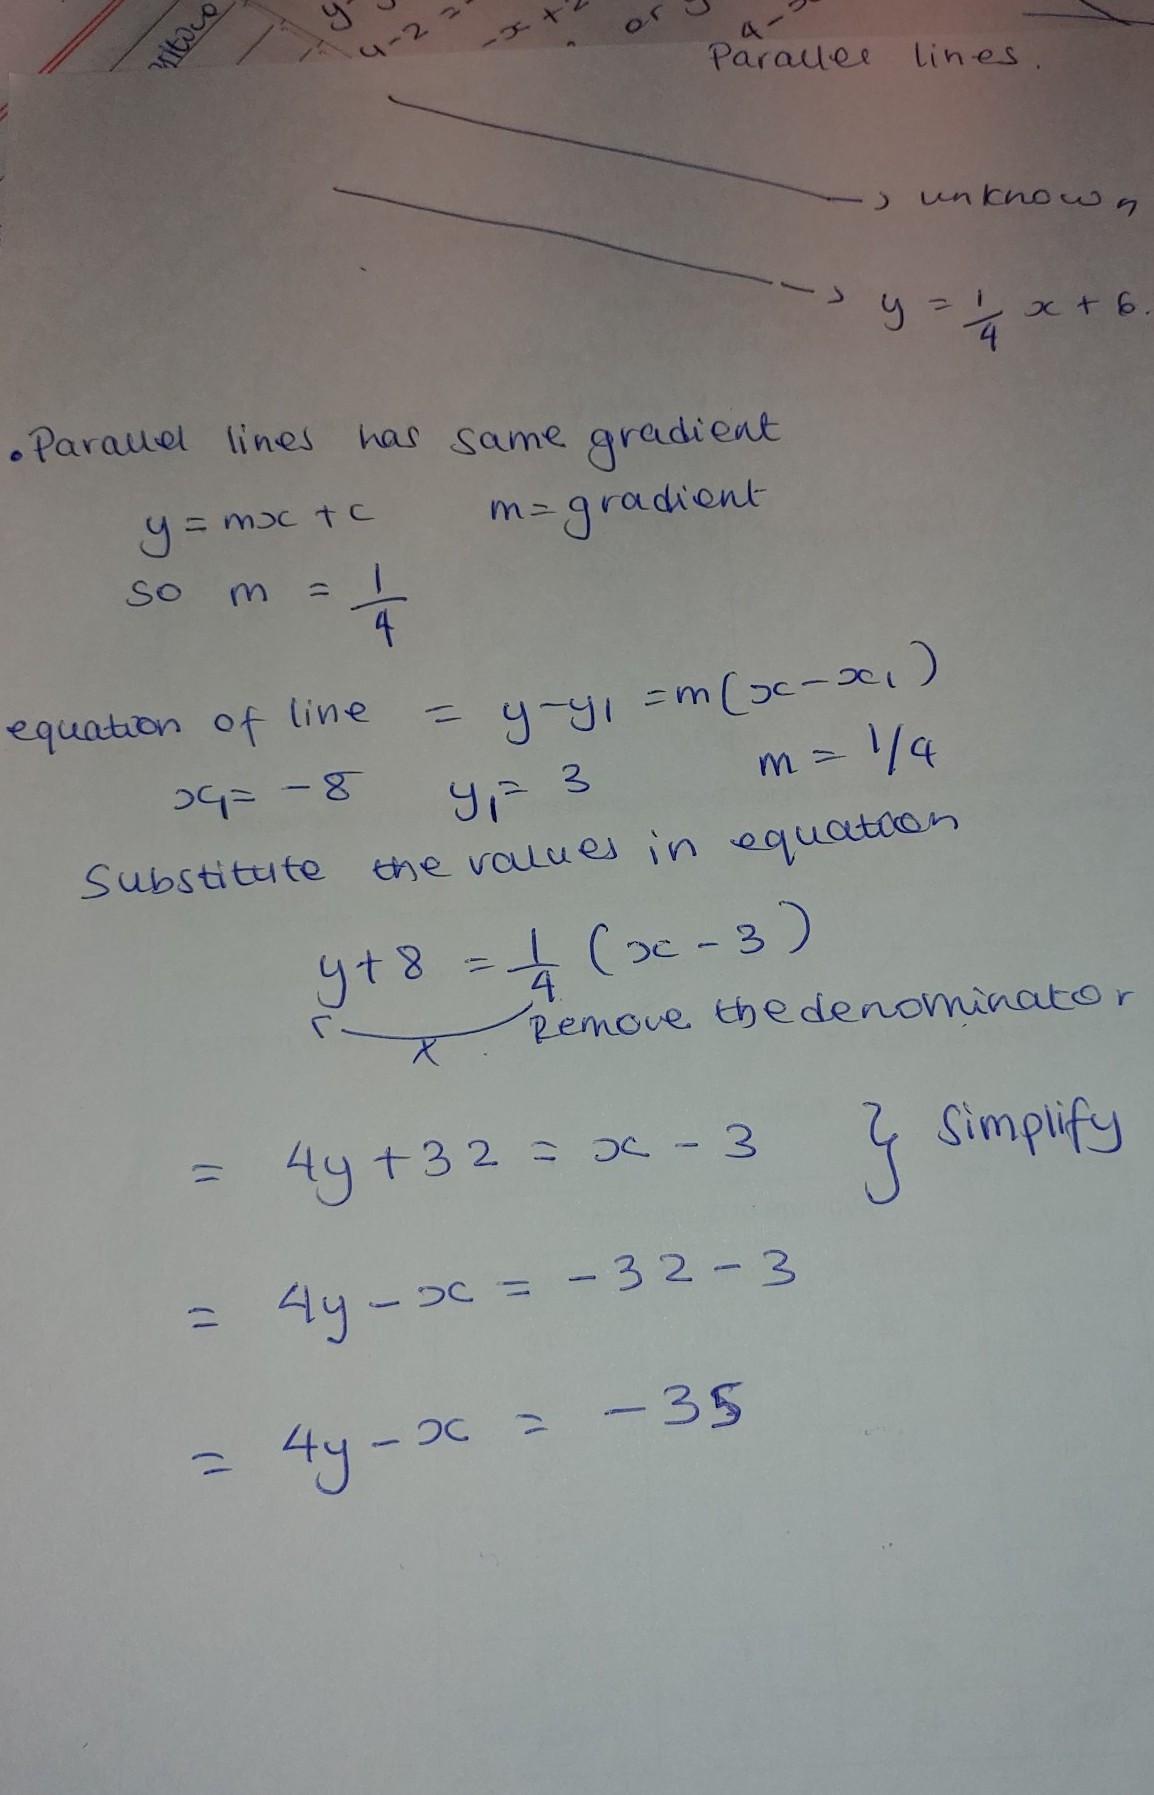 Parallel lines.
→ unknown
→ y = 1/4 x + 6.
• Parallel lines has same gradient
y = mx + c m = gradient
so m = 1/4
equation of line = y - y1 = m(x - x1)
x1 = -8 y1 = 3 m = 1/4
Substitute the values in equation
y + 8 = 1/4 (x - 3)
x Remove the denominator
= 4y + 32 = x - 3 } Simplify
= 4y - x = -32 - 3
= 4y - x = -35